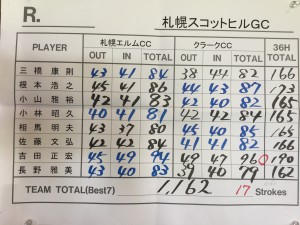 R. 札幌スコットヒルGC
PLAYER 札幌エルムCC クラークCC 36H
OUT IN TOTAL OUT IN TOTAL TOTAL
三橋康則 43 41 84 38 44 82 166
根本浩之 45 41 86 44 43 87 173
小山雅裕 42 41 83 42 40 82 165
小林昭久 40 41 81 42 42 84 165
相馬明夫 43 37 80 45 40 85 165
佐藤文弘 42 42 84 41 41 82 166
吉田正宏 45 49 94 49 47 96 190
長野雅美 43 40 83 39 40 79 162
TEAM TOTAL(Best7) 1,162 17 Strokes